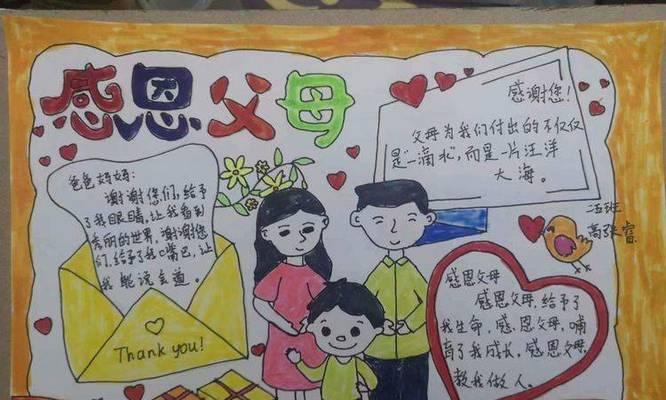 感恩父母
爸爸妈妈:
谢谢您们,给予
了我眼睛,让我看到
秀丽的世界。谢谢您
们,给予了我嘴巴,让
我能说会道。
Thank you!
感谢您!
父母为我们付出的不仅仅
是“一滴水”,而是一片汪洋
大海。
高张富
感恩父母
感恩父母,给予了
我生命,感恩父母,哺
育了我成长,感恩父母,
教我做人。